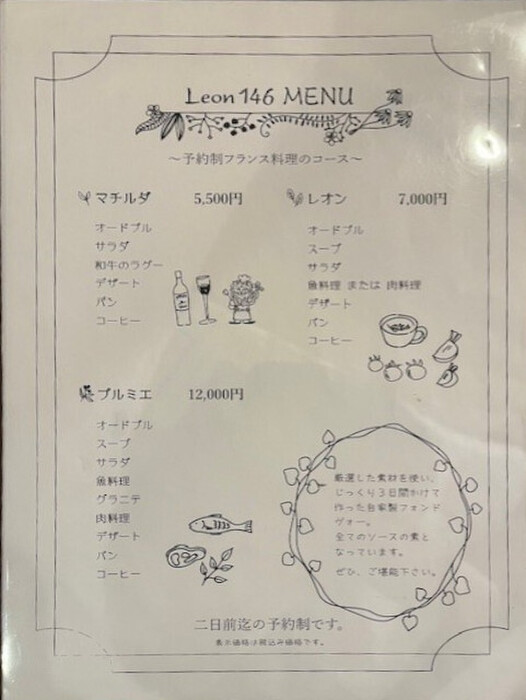 Leon 146 MENU
～予約制フランス料理のコース～
マチルダ 5,500円
オードブル
サラダ
和牛のラグー
デザート
パン
コーヒー
レオン 7,000円
オードブル
スープ
サラダ
魚料理 または 肉料理
デザート
パン
コーヒー
プルミエ 12,000円
オードブル
スープ
サラダ
魚料理
グラニテ
肉料理
デザート
パン
コーヒー
厳選した素材を使い、
じっくり3日間かけて
作った自家製フォンド
ヴォー。
全てのソースの素と
なっています。
ぜひ、ご堪能下さい。
二日前迄の予約制です。
表示価格は税込み価格です。